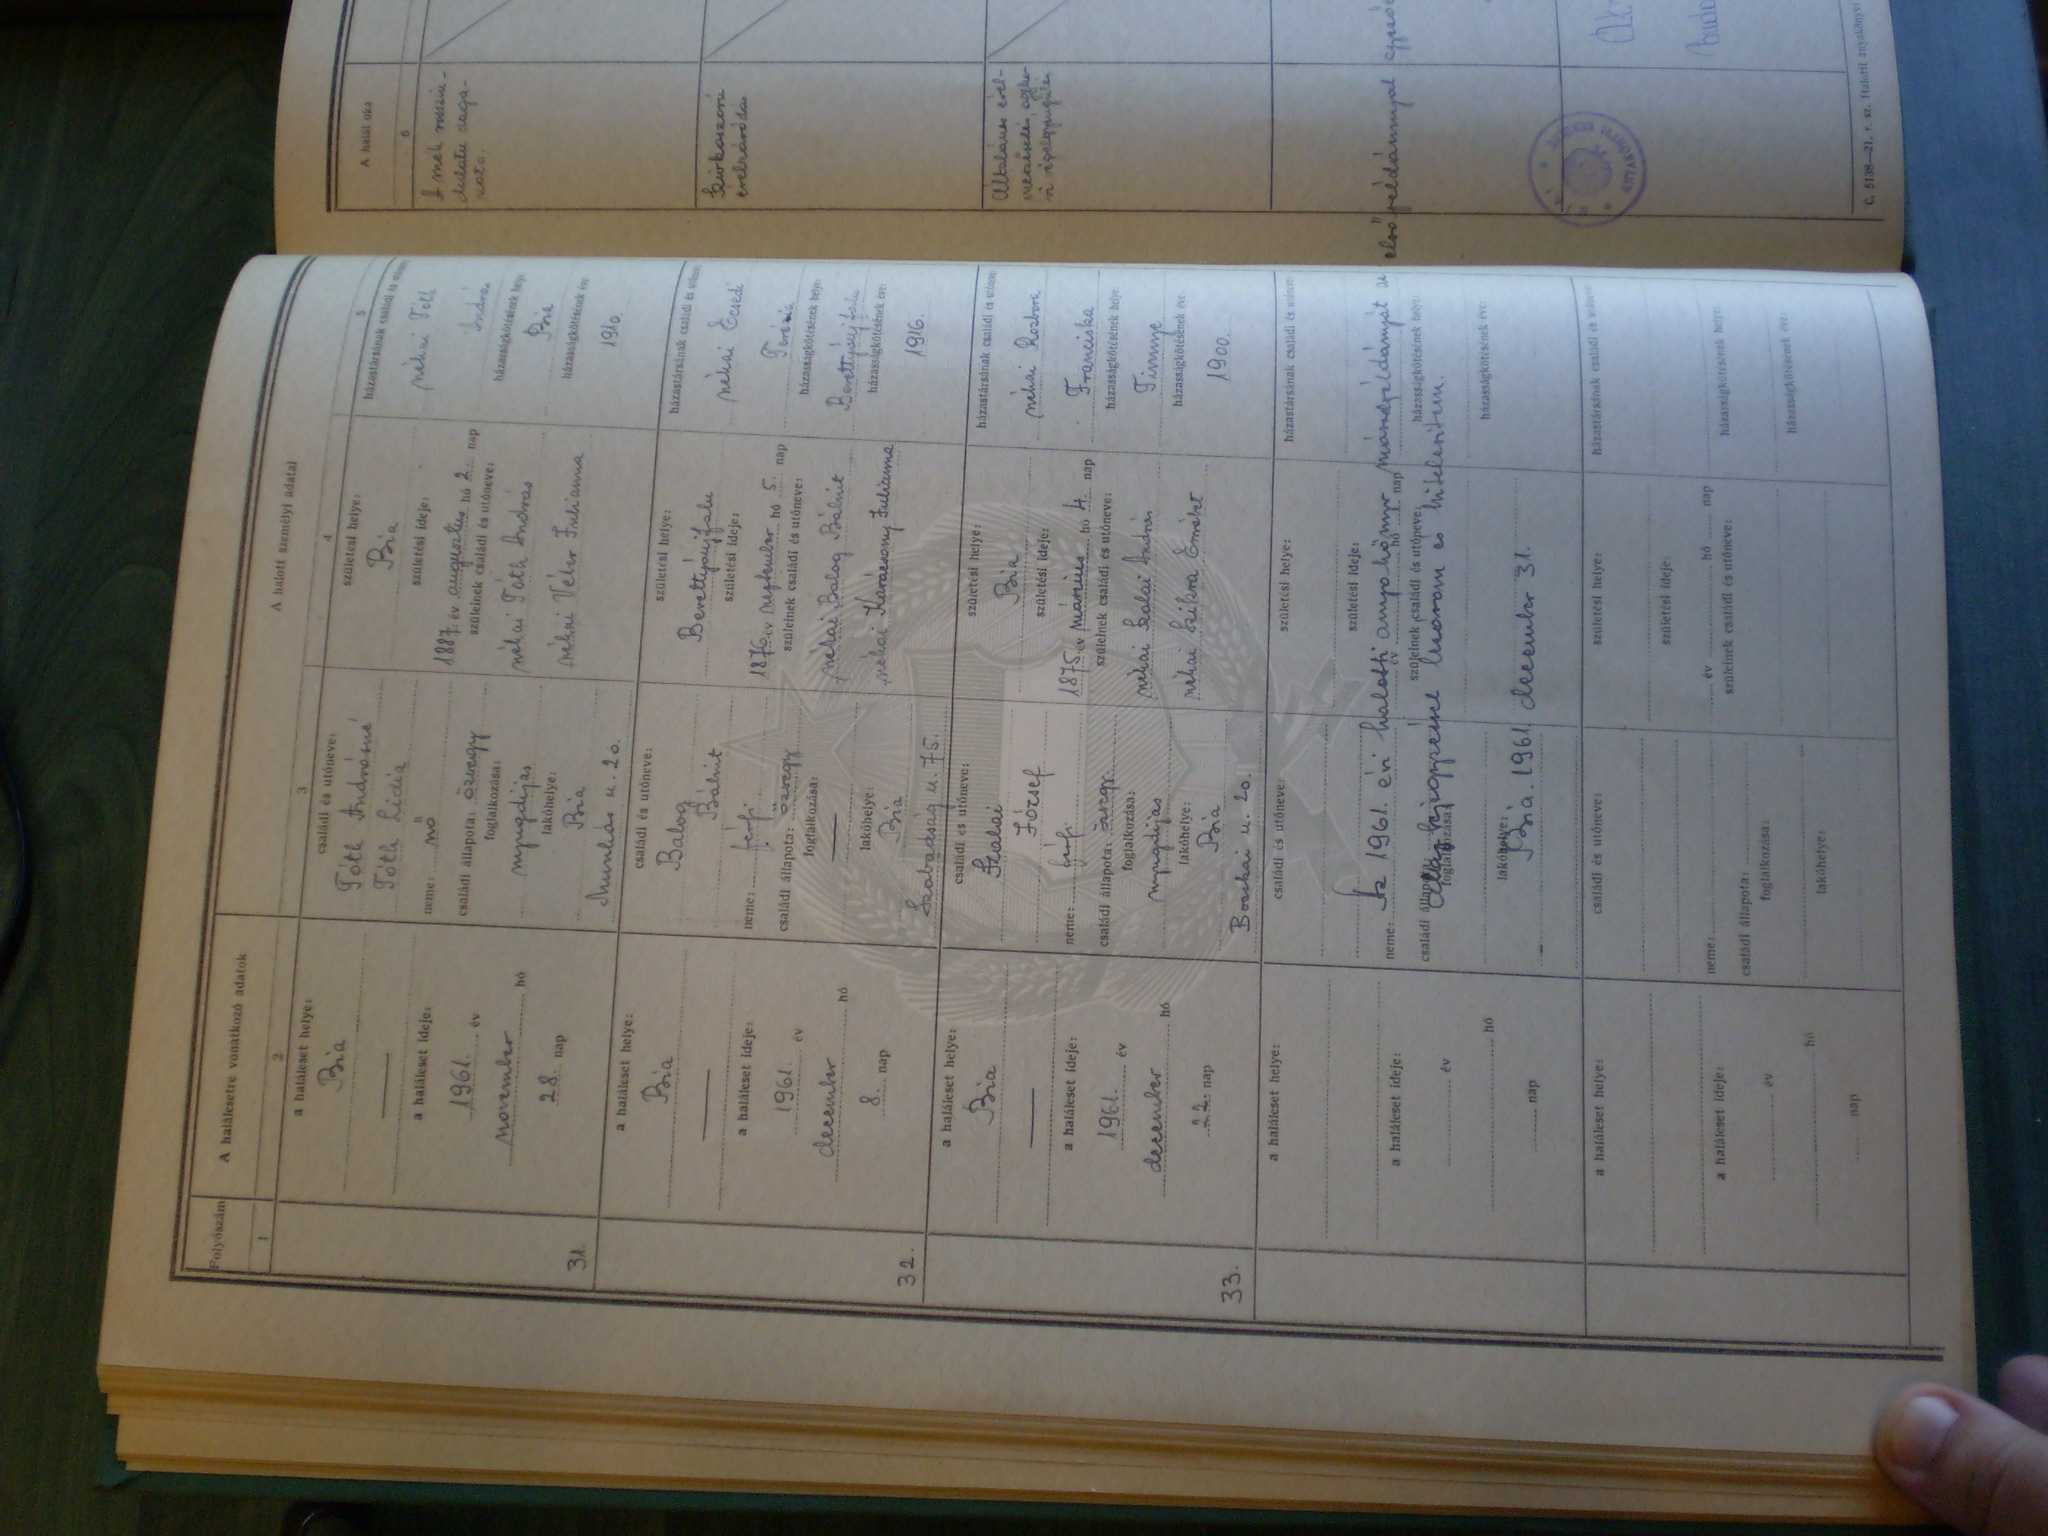 Folyószám
A halálesetre vonatkozó adatok
A halott személyi adatai
A halál oka
1
2
3
4
5
6
31.
a haláleset helye:
Bia
a haláleset ideje:
1961. év
november hó
28. nap
családi és utóneve:
Tóth Andrásné
Tóth Lidia
neme: nő
családi állapota: özvegy
foglalkozása:
nyugdíjas
lakóhelye:
Bia
Munkás u. 20.
születési helye:
Bia
születési ideje:
1887. év augusztus hó 2. nap
szüleinek családi és utóneve:
néhai Tóth András
néhai Julianna
házastársának családi és utóneve:
néhai Tóth
András
házasságkötésének helye:
Bia
házasságkötésének éve:
1910.
A méh rosszin-
dulatu daga-
nata.
32.
a haláleset helye:
Bia
a haláleset ideje:
1961. év
december hó
8. nap
családi és utóneve:
Balog
Bálint
neme: férfi
családi állapota: özvegy
foglalkozása:
lakóhelye:
Bia
Szabadság u. 75.
születési helye:
Berettyóujfalu
születési ideje:
1876. év szeptember hó 5. nap
szüleinek családi és utóneve:
néhai Balog Bálint
néhai Karácsony Julianna
házastársának családi és utóneve:
néhai Ecsedi
Terézia
házasságkötésének helye:
Berettyóujfalu
házasságkötésének éve:
1916.
Szívkoszorú
elzáródás.
33.
a haláleset helye:
Bia
a haláleset ideje:
1961. év
december hó
22. nap
családi és utóneve:
Szalai
József
neme: férfi
családi állapota: özvegy
foglalkozása:
nyugdíjas
lakóhelye:
Bia
Bocskai u. 20.
születési helye:
Bia
születési ideje:
1875. év március hó 4. nap
szüleinek családi és utóneve:
néhai Szalai András
néhai Szikra Erzsébet
házastársának családi és utóneve:
néhai
Franciska
házasságkötésének helye:
Tinnye
házasságkötésének éve:
1900.
Általános érel-
meszesedés,
végelgyengülés
a haláleset helye:
a haláleset ideje:
év
hó
nap
családi és utóneve:
neme:
családi állapota:
foglalkozása:
lakóhelye:
születési helye:
születési ideje:
év hó nap
szüleinek családi és utóneve:
házastársának családi és utóneve:
házasságkötésének helye:
házasságkötésének éve:
Az 1961. évi halotti anyakönyv másodpéldányát az első példánnyal
lezárom és hitelesitem.
Bia. 1961. december 31.
a haláleset helye:
a haláleset ideje:
év
hó
nap
családi és utóneve:
neme:
családi állapota:
foglalkozása:
lakóhelye:
születési helye:
születési ideje:
év hó nap
szüleinek családi és utóneve:
házastársának családi és utóneve:
házasságkötésének helye:
házasságkötésének éve:
C. 5138—21. r. sz. Halotti anyakönyvi